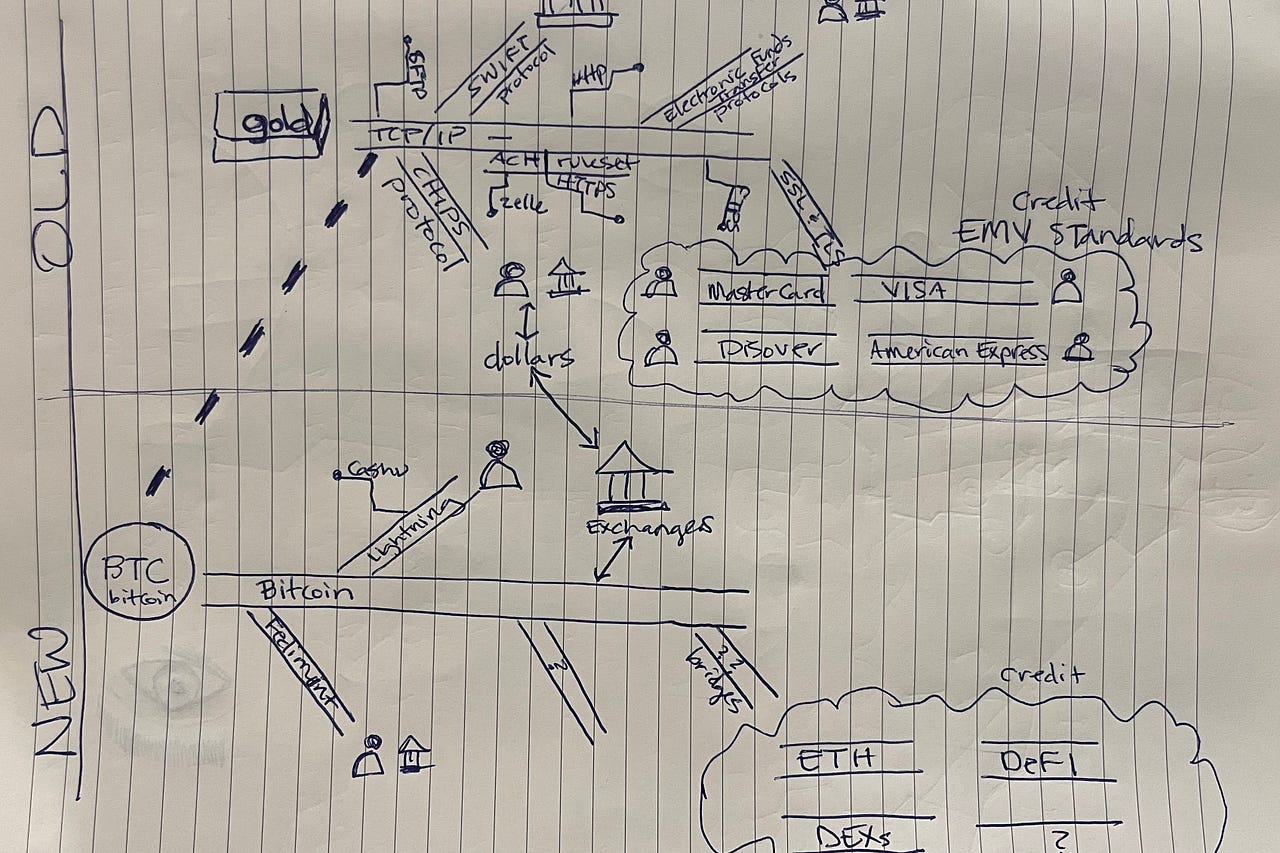 OLD
SFTP
SWIFT
protocol
HTTP
Electronic Funds
Transfer
protocols
gold
TCP/IP
ACH ruleset
HTTPS
zelle
CHIPS
protocol
FTPS
SSL & TLS
Credit
EMV STandards
MasterCard
VISA
Disover
American Express
dollars
NEW
Cashu
Lightning
Exchanges
BTC
bitcoin
Bitcoin
Fedimint
?
??
bridges
credit
ETH
DeFI
DEXs
?